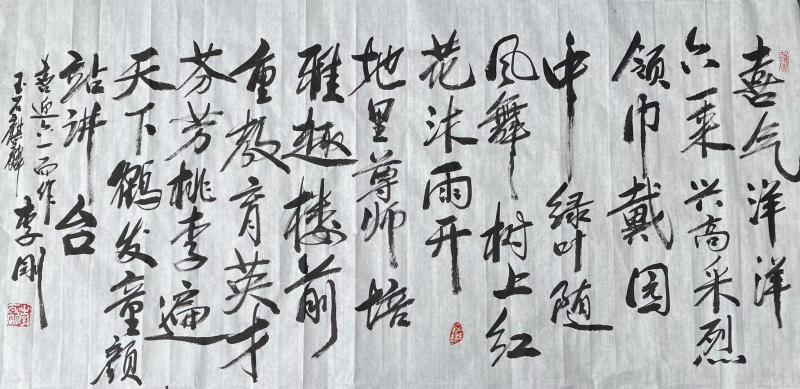 喜气洋洋
六一来兴高采烈
领巾戴园
中绿叶随
风舞树上红
花沐雨开
地里尊师培
雅趣楼前
重教育英才
芬芳桃李遍
天下鹤发童颜
站讲台
喜迎六一而作
玉石麒麟李刚